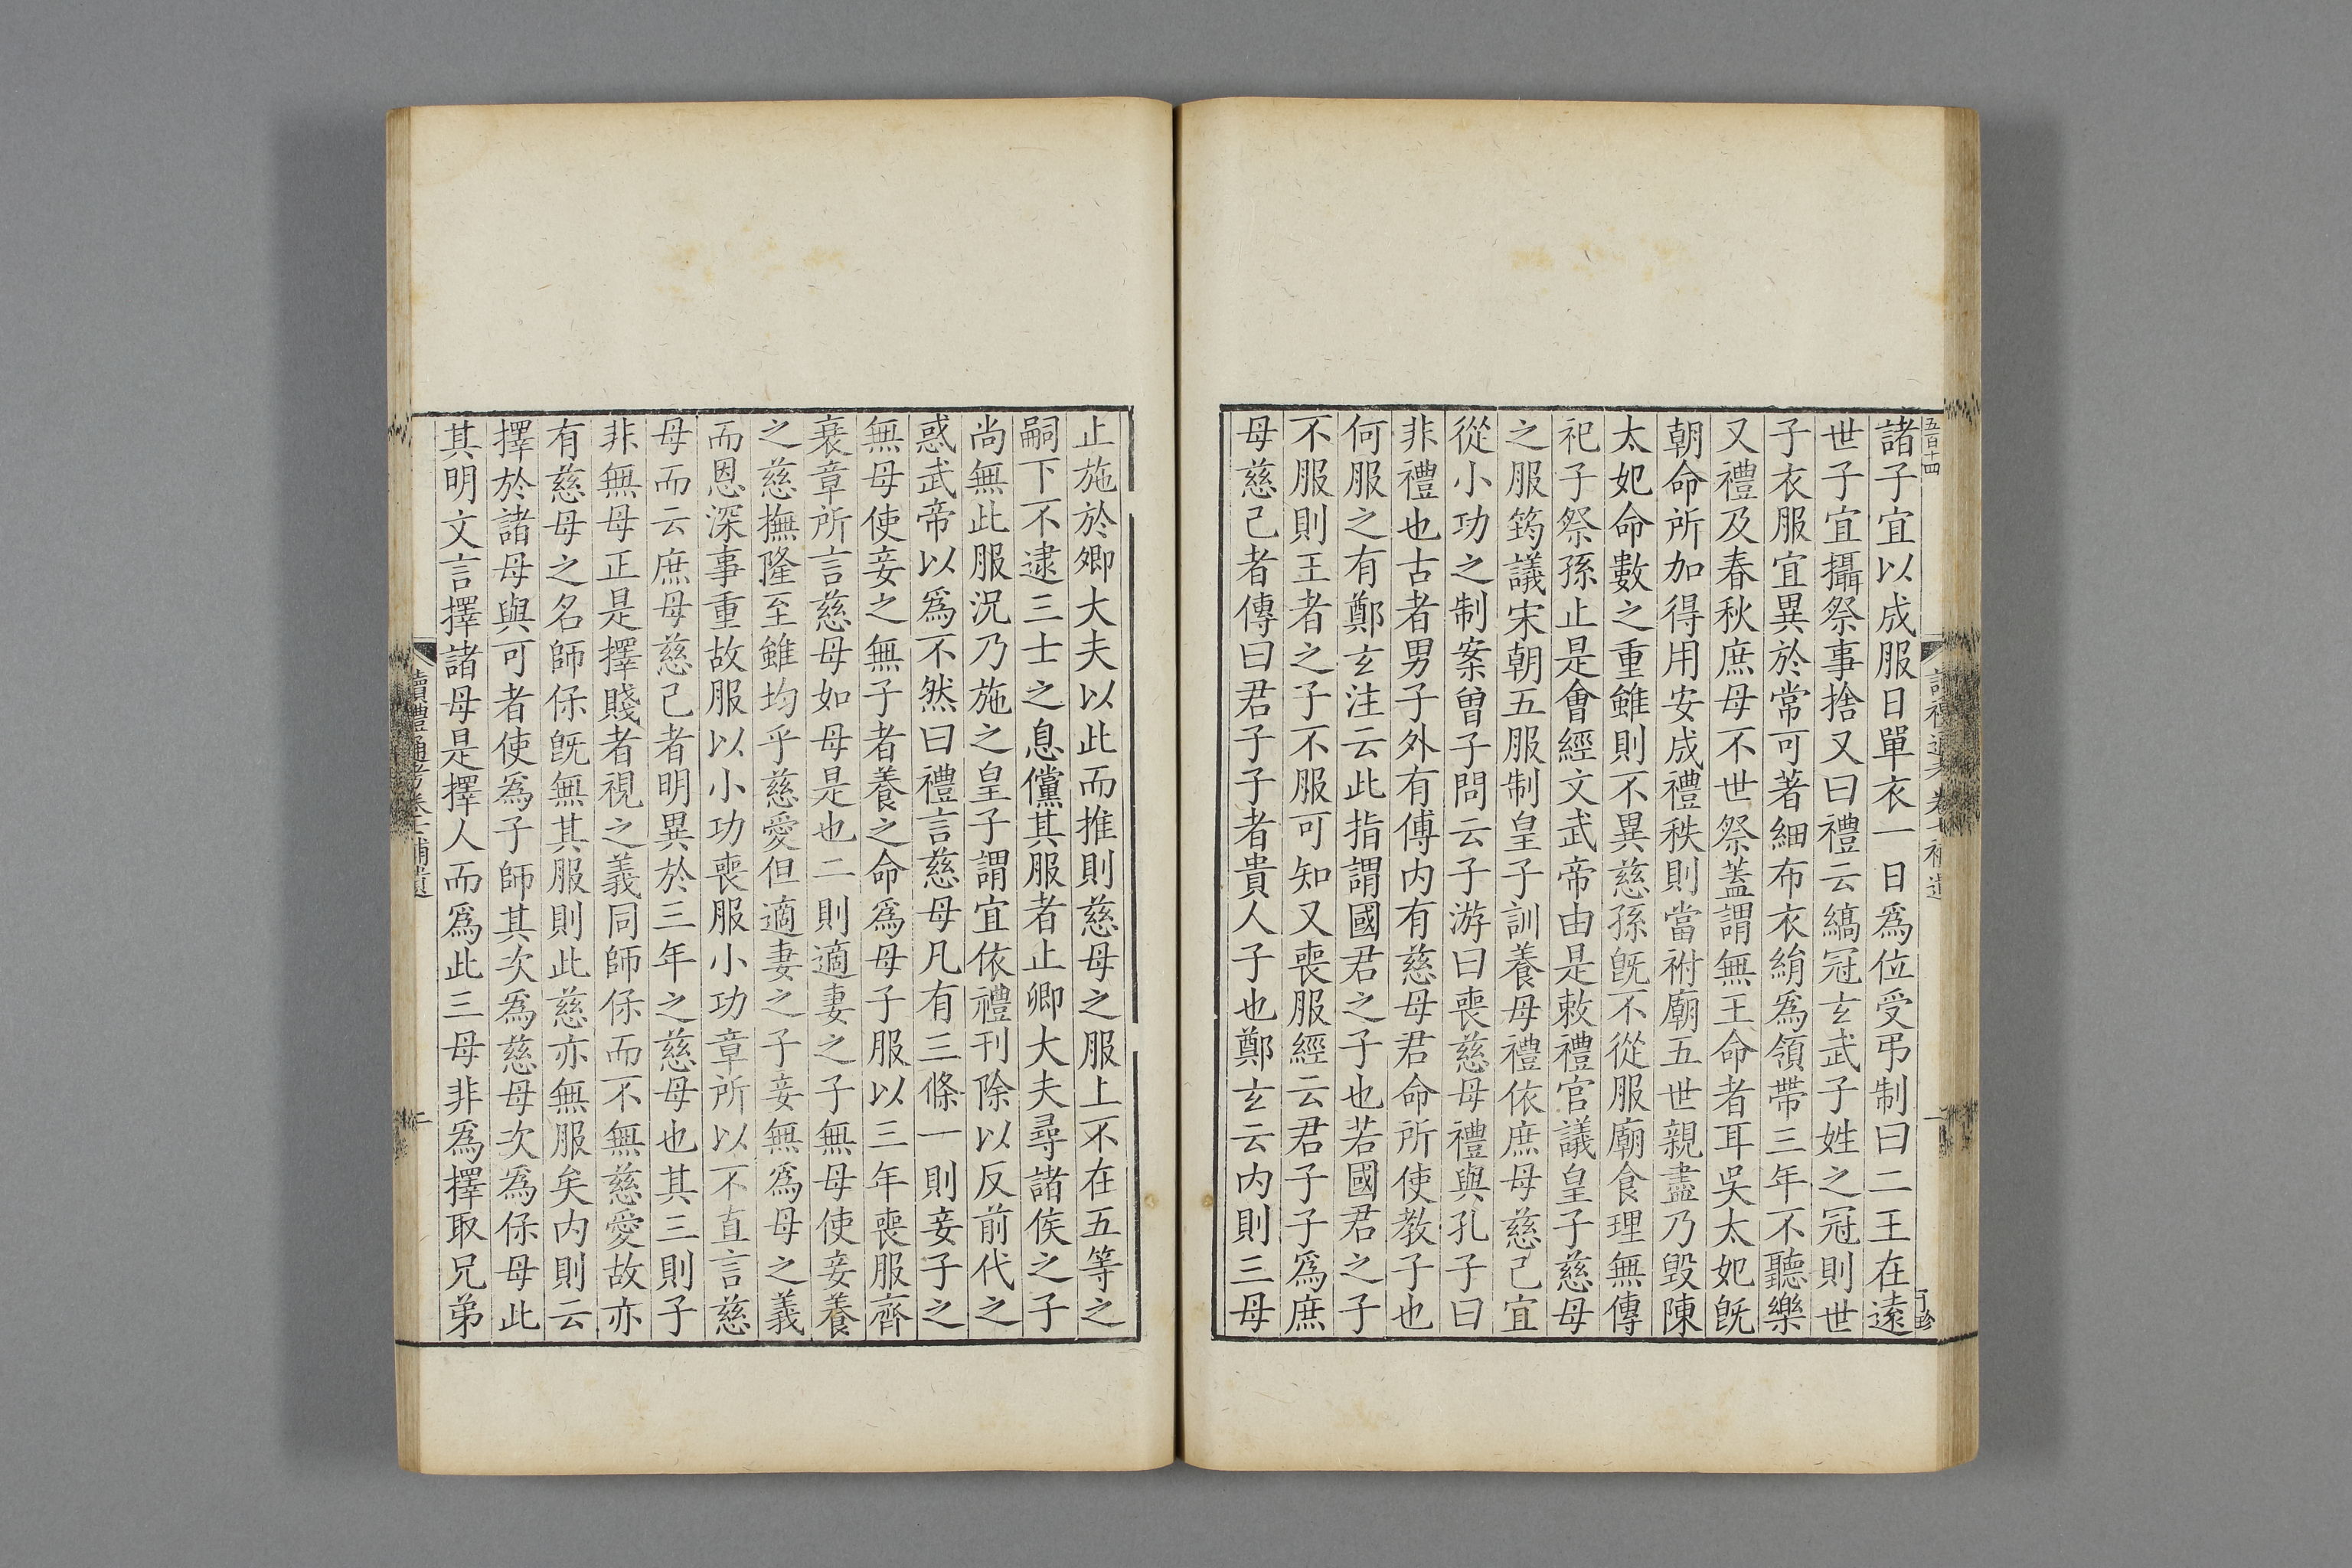 五百十四
諸子宜以成服日單衣一日爲位受弔制曰二王在遠
世子宜攝祭事捨又曰禮云縞冠玄武子姓之冠則世
子衣服宜異於常可著細布衣絹爲領帶三年不聽樂
又禮及春秋庶母不世祭蓋謂無王命者耳吳太妃旣
朝命所加得用安成禮秩則當祔廟五世親盡乃毀陳
太妃命數之重雖則不異慈孫旣不從服廟食理無傳
祀子祭孫止是會經文武帝由是敕禮官議皇子慈母
之服筠議宋朝五服制皇子訓養母禮依庶母慈己宜
從小功之制案曾子問云子游曰喪慈母禮與孔子曰
非禮也古者男子外有傅内有慈母君命所使教子也
何服之有鄭玄注云此指謂國君之子也若國君之子
不服則王者之子不服可知又喪服經云君子子爲庶
母慈己者傳曰君子子者貴人子也鄭玄云内則三母
止施於卿大夫以此而推則慈母之服上不在五等之
嗣下不逮三士之息儻其服者止卿大夫尋諸侯之子
尚無此服況乃施之皇子謂宜依禮刊除以反前代之
惑武帝以爲不然曰禮言慈母凡有三條一則妾子之
無母使妾之無子者養之命爲母子服以三年喪服齊
衰章所言慈母如母是也二則適妻之子無母使妾養
之慈撫隆至雖均乎慈愛但適妻之子妾無爲母之義
而恩深事重故服以小功喪服小功章所以不直言慈
母而云庶母慈己者明異於三年之慈母也其三則子
非無母正是擇賤者視之義同師保而不無慈愛故亦
有慈母之名師保旣無其服則此慈亦無服矣内則云
擇於諸母與可者使爲子師其次爲慈母次爲保母此
其明文言擇諸母是擇人而爲此三母非爲擇取兄弟
讀禮通考卷十補遺
二